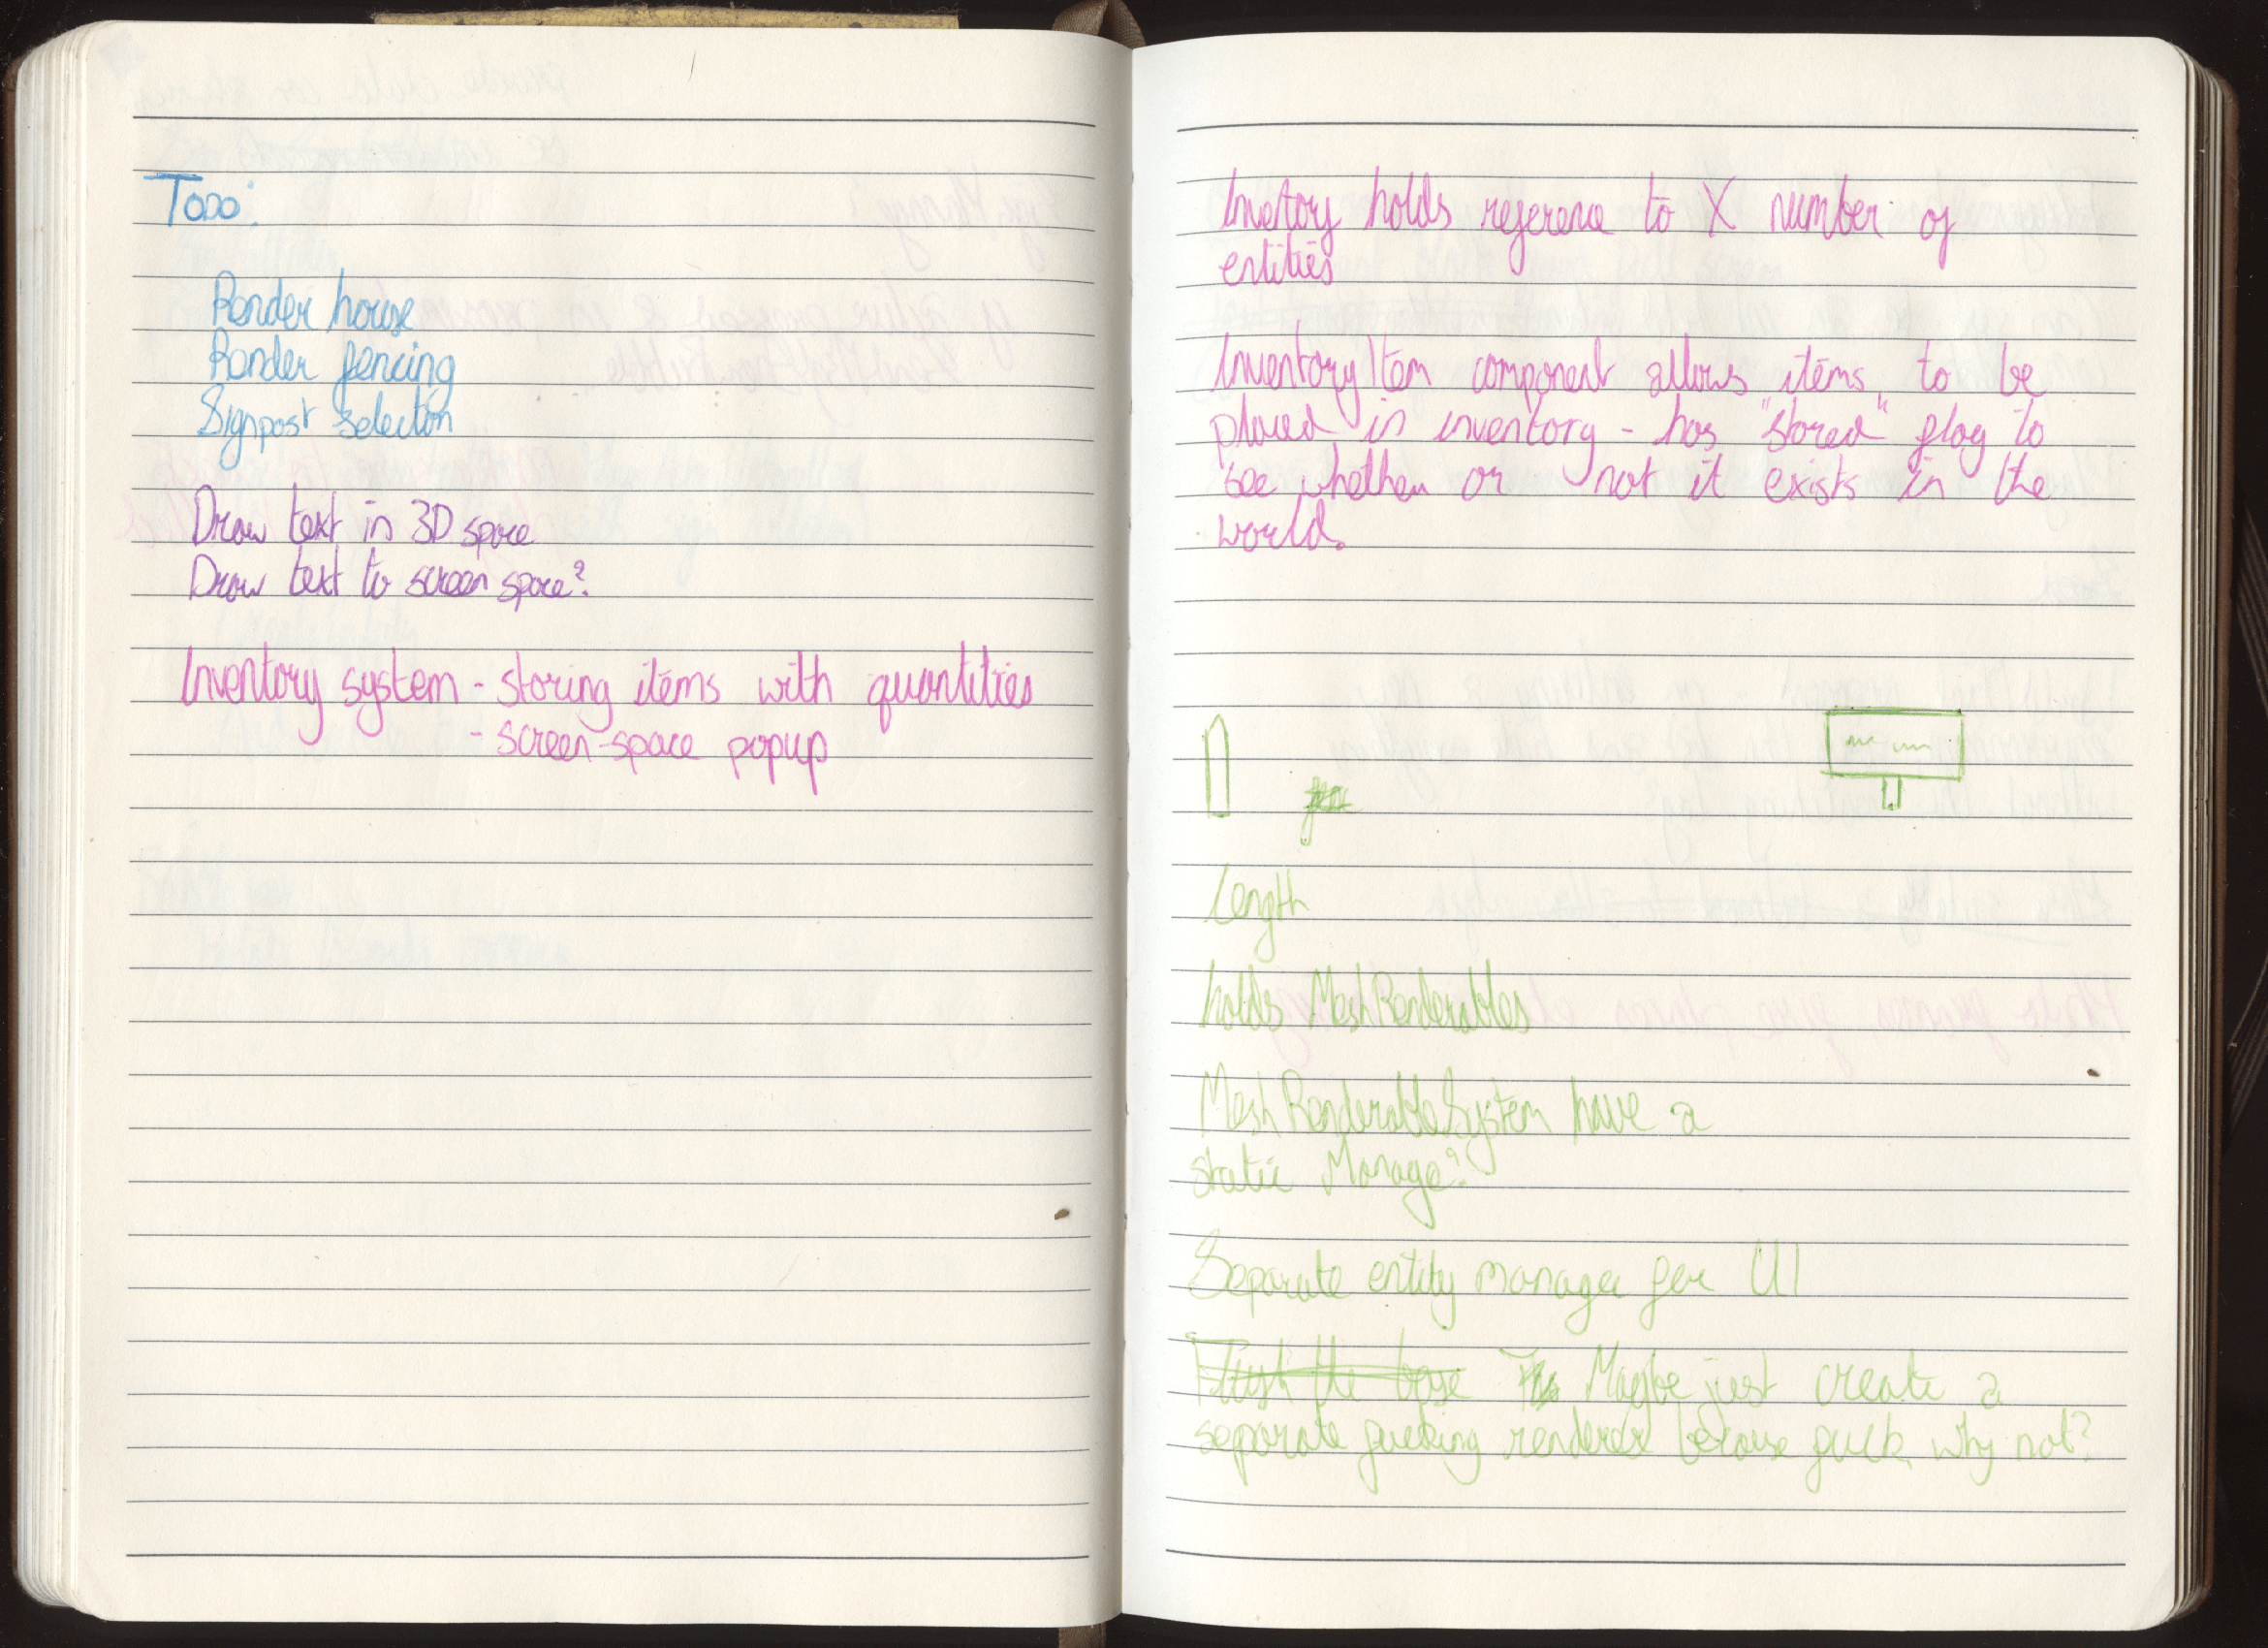 Todo:
Render house
Render fencing
Signpost selection
Draw text in 3D space
Draw text to screen space?
Inventory system - storing items with quantities
- screen-space popup
Inventory holds reference to X number of
entities
InventoryItem component allows items to be
placed in inventory - has "stored" flag to
see whether or not it exists in the
world.
Length
holds MeshRenderables
MeshRenderableSystem have a
static Manage?
Separate entity manager for UI
the base Maybe just create a
separate fucking renderer because fuck why not?